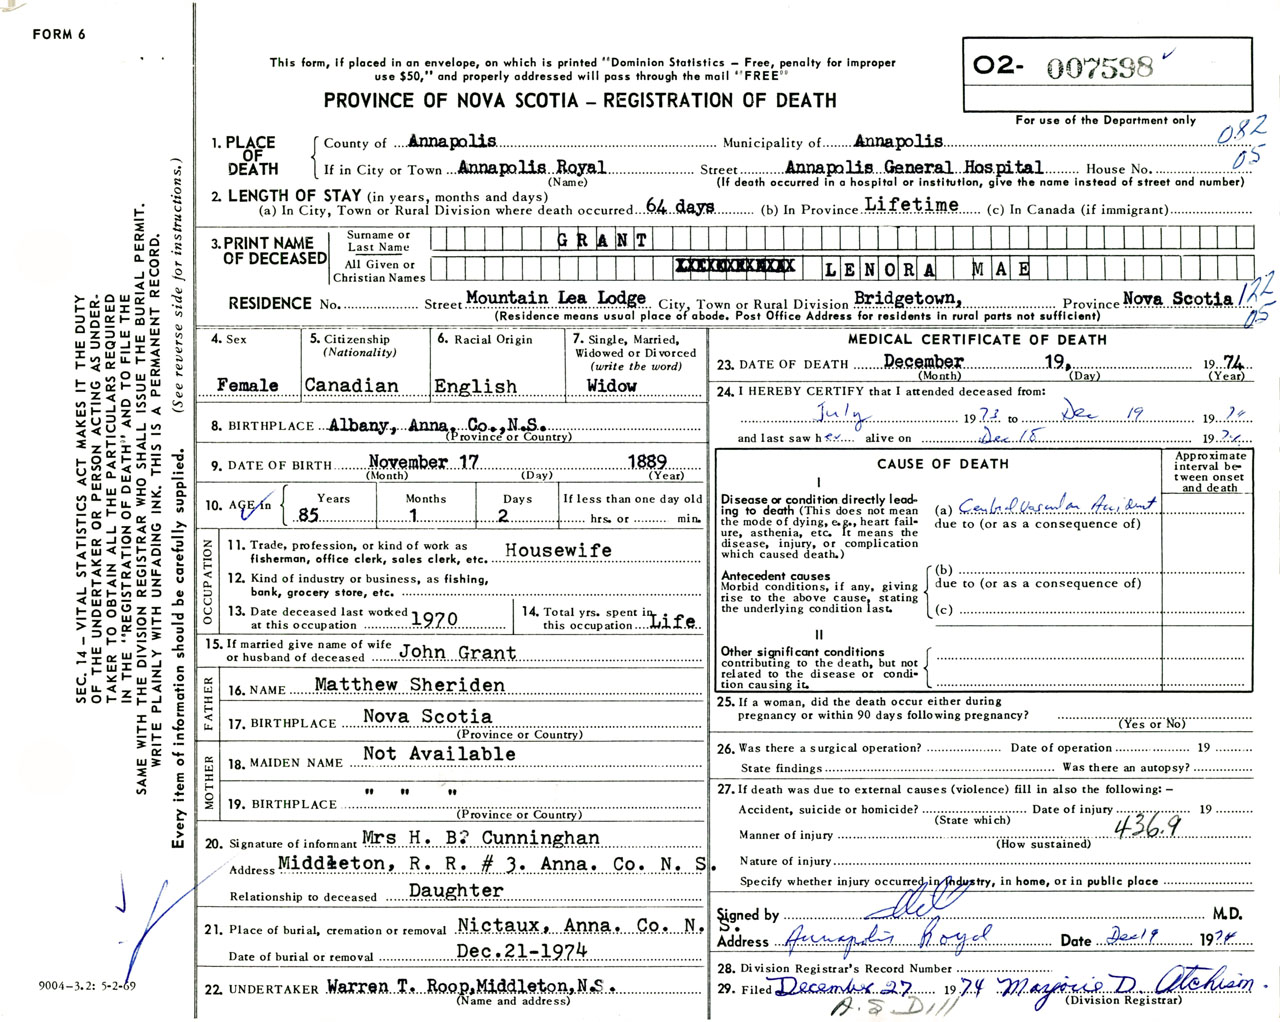 FORM 6
This form, if placed in an envelope, on which is printed "Dominion Statistics — Free, penalty for improper
use $50," and properly addressed will pass through the mail "FREE"
PROVINCE OF NOVA SCOTIA — REGISTRATION OF DEATH
02- 007598
For use of the Department only
082
05
1. PLACE OF DEATH
County of Annapolis Municipality of Annapolis
If in City or Town Annapolis Royal Street Annapolis General Hospital House No.
(Name) (If death occurred in a hospital or institution, give the name instead of street and number)
2. LENGTH OF STAY (in years, months and days)
(a) In City, Town or Rural Division where death occurred 64 days (b) In Province Lifetime (c) In Canada (if immigrant)
3. PRINT NAME OF DECEASED
Surname or Last Name GRANT
All Given or Christian Names LENORA MAE
RESIDENCE No. Street Mountain Lea Lodge City, Town or Rural Division Bridgetown, Province Nova Scotia 122
(Residence means usual place of abode. Post Office Address for residents in rural parts not sufficient) 05
4. Sex Female
5. Citizenship (Nationality) Canadian
6. Racial Origin English
7. Single, Married, Widowed or Divorced (write the word) Widow
8. BIRTHPLACE Albany, Anna. Co., N.S.
(Province or Country)
9. DATE OF BIRTH November 17 1889
(Month) (Day) (Year)
10. AGE in Years 85 Months 1 Days 2 If less than one day old hrs. or min.
OCCUPATION
11. Trade, profession, or kind of work as fisherman, office clerk, sales clerk, etc. Housewife
12. Kind of industry or business, as fishing, bank, grocery store, etc.
13. Date deceased last worked at this occupation 1970
14. Total yrs. spent in this occupation Life
15. If married give name of wife or husband of deceased John Grant
FATHER
16. NAME Matthew Sheriden
17. BIRTHPLACE Nova Scotia
(Province or Country)
MOTHER
18. MAIDEN NAME Not Available
19. BIRTHPLACE " " "
(Province or Country)
20. Signature of informant Mrs H. B? Cunninghan
Address Middleton, R. R. # 3. Anna. Co. N. S.
Relationship to deceased Daughter
21. Place of burial, cremation or removal Nictaux, Anna. Co. N. S.
Date of burial or removal Dec.21-1974
22. UNDERTAKER Warren T. Roop, Middleton, N.S.
(Name and address)
MEDICAL CERTIFICATE OF DEATH
23. DATE OF DEATH December 19, 1974
(Month) (Day) (Year)
24. I HEREBY CERTIFY that I attended deceased from:
July 1973 to Dec 19 1974
and last saw her alive on Dec 18 1974
CAUSE OF DEATH
Approximate interval between onset and death
I
Disease or condition directly leading to death (This does not mean the mode of dying, e.g., heart failure, asthenia, etc. It means the disease, injury, or complication which caused death.)
(a) Cerebral Vascular Accident
due to (or as a consequence of)
Antecedent causes
Morbid conditions, if any, giving rise to the above cause, stating the underlying condition last.
(b)
due to (or as a consequence of)
(c)
II
Other significant conditions
contributing to the death, but not related to the disease or condition causing it.
25. If a woman, did the death occur either during pregnancy or within 90 days following pregnancy?
(Yes or No)
26. Was there a surgical operation? Date of operation 19
State findings Was there an autopsy?
27. If death was due to external causes (violence) fill in also the following: —
Accident, suicide or homicide? Date of injury 19
(State which)
Manner of injury 436.9
(How sustained)
Nature of injury
Specify whether injury occurred in industry, in home, or in public place
Signed by M.D.
Address Annapolis Royal Date Dec 19 1974
28. Division Registrar's Record Number
29. Filed December 27 1974 Marjorie D. Atchison.
(Division Registrar)
A. S. Dill
SEC. 14 — VITAL STATISTICS ACT MAKES IT THE DUTY
OF THE UNDERTAKER OR PERSON ACTING AS UNDER-
TAKER TO OBTAIN ALL THE PARTICULARS REQUIRED
IN THE "REGISTRATION OF DEATH" AND TO FILE THE
SAME WITH THE DIVISION REGISTRAR WHO SHALL ISSUE THE BURIAL PERMIT.
WRITE PLAINLY WITH UNFADING INK. THIS IS A PERMANENT RECORD.
Every item of information should be carefully supplied. (See reverse side for instructions.)
9004-3.2: 5-2-69